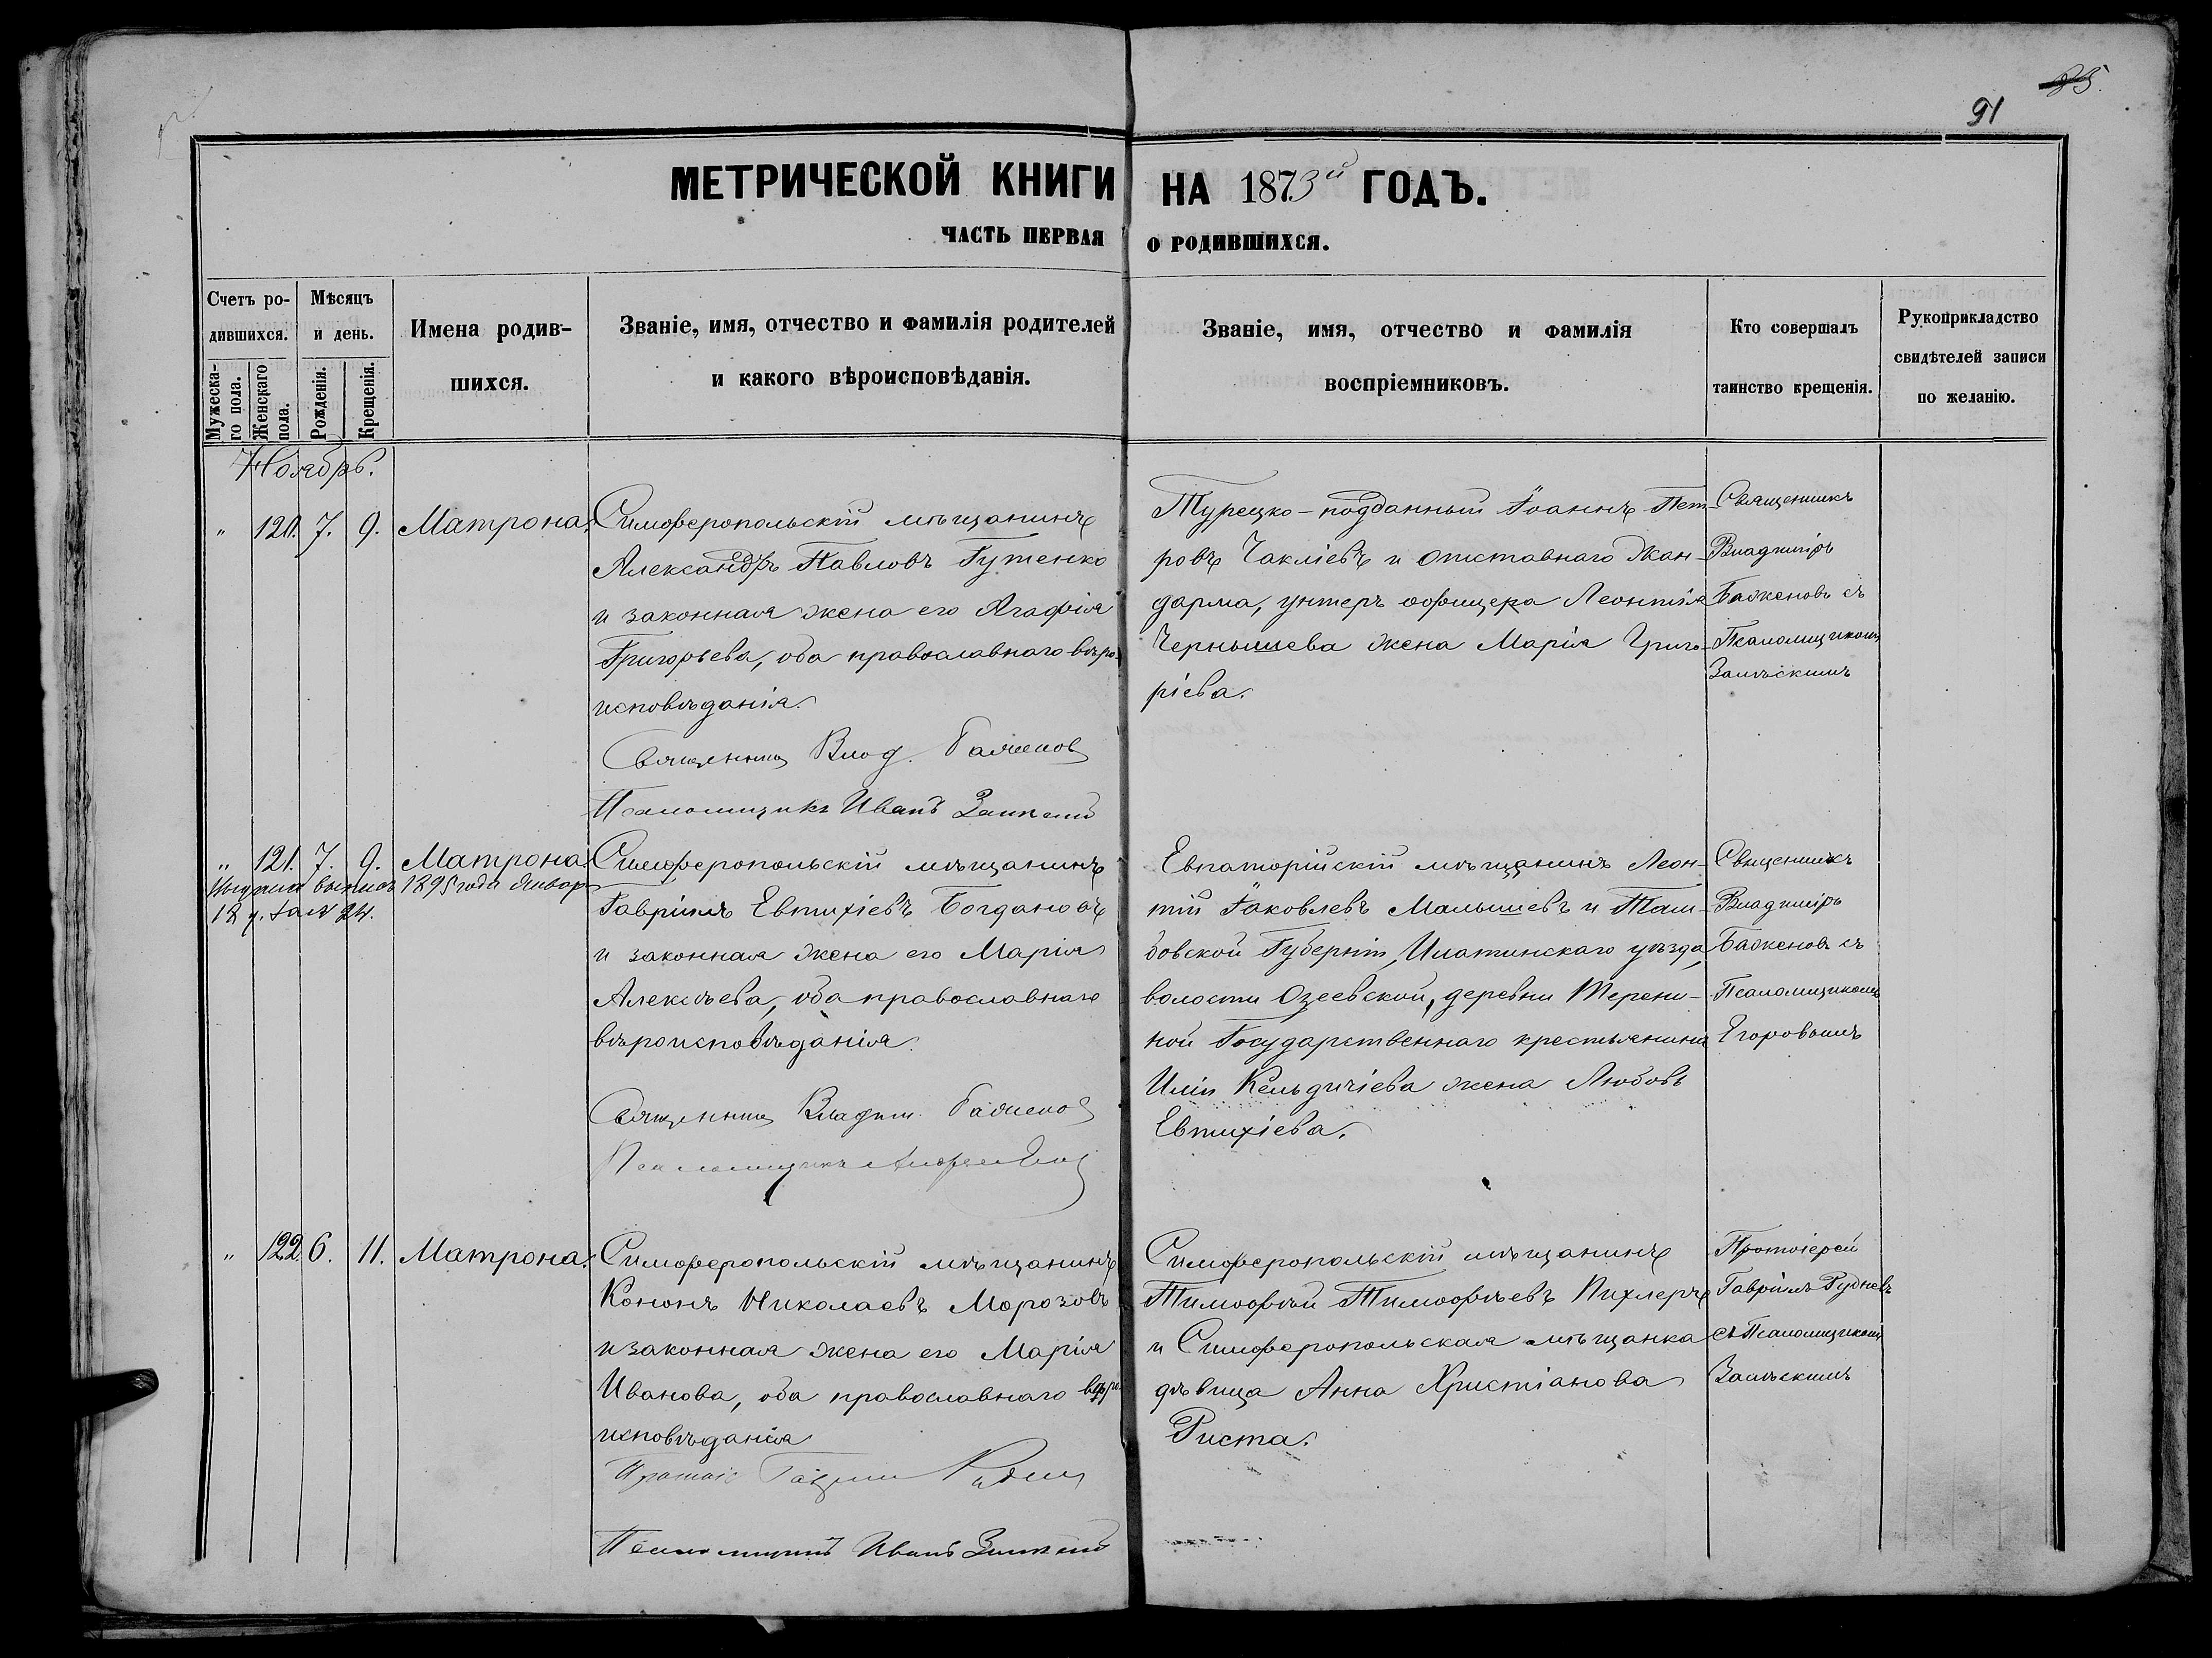 85.
91
МЕТРИЧЕСКОЙ КНИГИ НА 1873й ГОДЪ.
ЧАСТЬ ПЕРВАЯ О РОДИВШИХСЯ.
Счетъ ро-
дившихся.
Мужеска-
го пола.
Женскаго
пола.
Мѣсяцъ
и день.
Рожденія.
Крещенія.
Имена родив-
шихся.
Званіе, имя, отчество и фамилія родителей
и какого вѣроисповѣданія.
Званіе, имя, отчество и фамилія
воспріемниковъ.
Кто совершалъ
таинство крещенія.
Рукоприкладство
свидѣтелей записи
по желанію.
Ноябрь.
" 120. 7. 9. Матрона.
Симферопольскій мѣщанинъ
Александръ Павловъ Гутенко
и законная жена его Агафія
Григорьева, оба православнаго вѣро-
исповѣданія.
Священникъ Влад. Баженовъ
Псаломщикъ Иванъ
Турецко-подданный Іоаннъ Пет-
ровъ Чакліевъ и отставнаго Жан-
дарма, унтеръ офицера Леонтія
Чернышева жена Марія Григо-
ріева.
Священникъ
Владиміръ
Баженовъ съ
Псаломщикомъ
" 121. 7. 9. Матрона.
1895 года Январ
18 д. за № 24.
Симферопольскій мѣщанинъ
Гавріилъ Евтихіевъ Богдановъ
и законная жена его Марія
Алексѣева, оба православнаго
вѣроисповѣданія.
Священникъ Владим. Баженовъ
Псаломщикъ
Евпаторійскій мѣщанинъ Леон-
тій Іаковлевъ Малышевъ и Там-
бовской Губерніи, уѣзда,
волости Озеевской, деревни Терени-
ной Государственнаго крестьянина
Иліи Кельдичіева жена Любовь
Евтихіева.
Священникъ
Владиміръ
Баженовъ съ
Псаломщикомъ
Егоровымъ
" 122. 6. 11. Матрона.
Симферопольскій мѣщанинъ
Кононъ Николаевъ Морозовъ
и законная жена его Марія
Иванова, оба православнаго вѣро-
исповѣданія
Псаломщикъ Иванъ
Симферопольскій мѣщанинъ
Тимофѣй Тимофѣевъ Пихлеръ
и Симферопольская мѣщанка
дѣвица Анна Христіанова
Риста.
Протоіерей
Гавріилъ Рудневъ
съ Псаломщикомъ